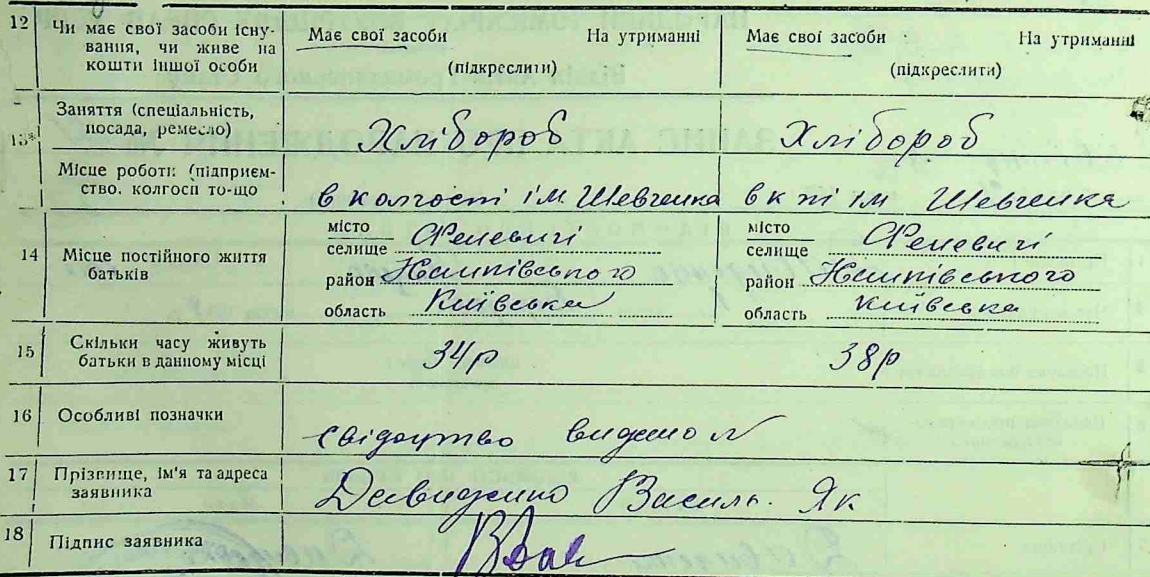 12 Чи має свої засоби існу-
вання, чи живе на
кошти іншої особи
Має свої засоби На утриманні Має свої засоби На утриманні
(підкреслити) (підкреслити)
13 Заняття (спеціальність,
посада, ремесло) Хлібороб Хлібороб
Місце роботи (підприєм-
ство, колгосп то-що в колгоспі ім Шевченка в к пі ім Шевченка
14 Місце постійного життя
батьків
місто місто
селище Феневичі селище Феневичі
район район
область Київська область Київська
15 Скільки часу живуть
батьки в данному місці 34р 38р
16 Особливі позначки свідоцтво видано №
17 Прізвище, ім'я та адреса
заявника Давиденко Василь Як
18 Підпис заявника